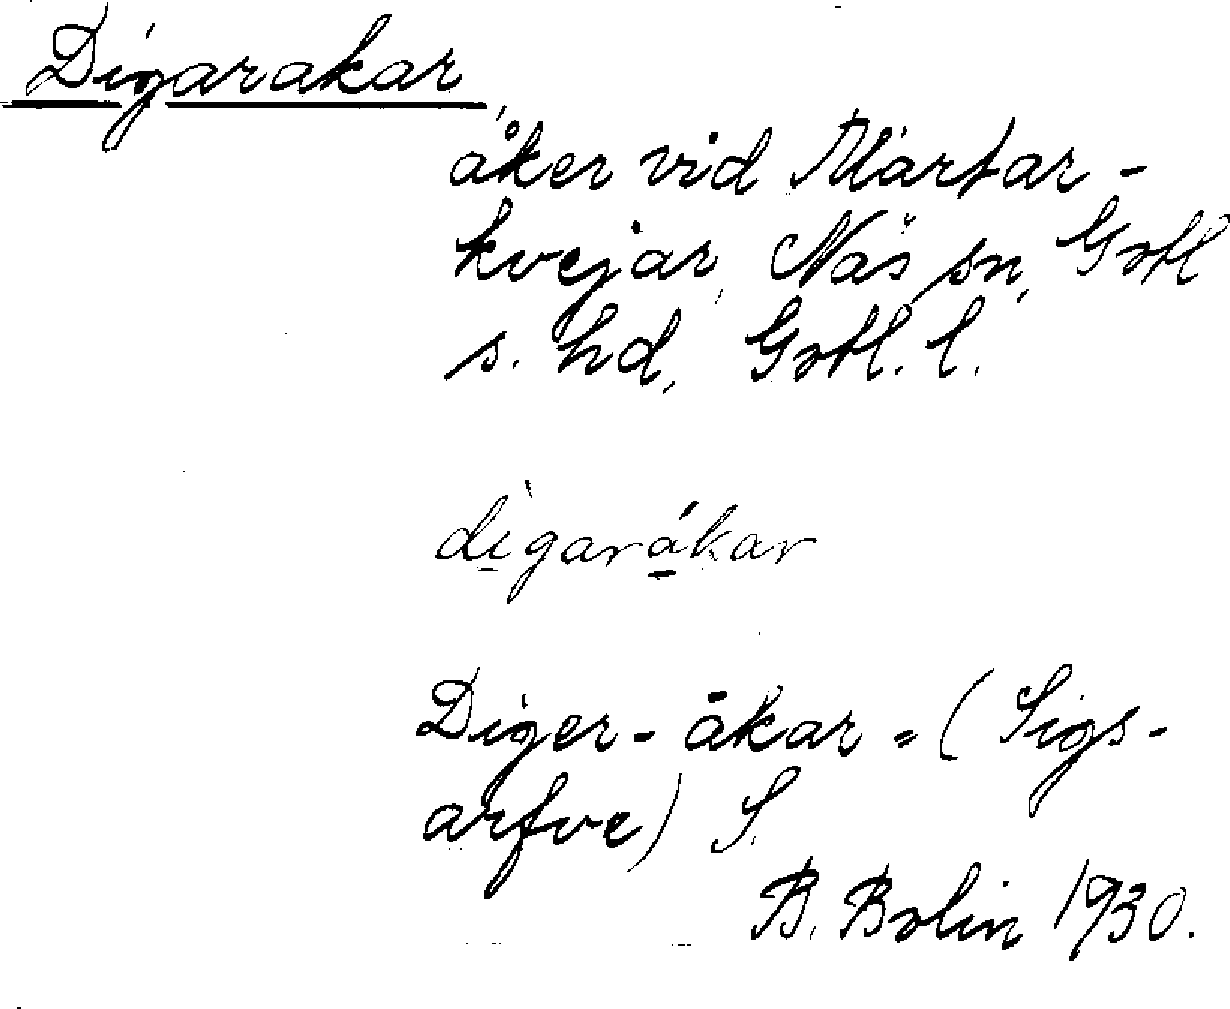 Digarakar,
åker vid Märtar-
kvejar, Näs sn, Gotl
s. hd, Gotl. l.
digarákar
Diger-åkar = (Sigs-
arfve) S.
B. Bolin 1930.